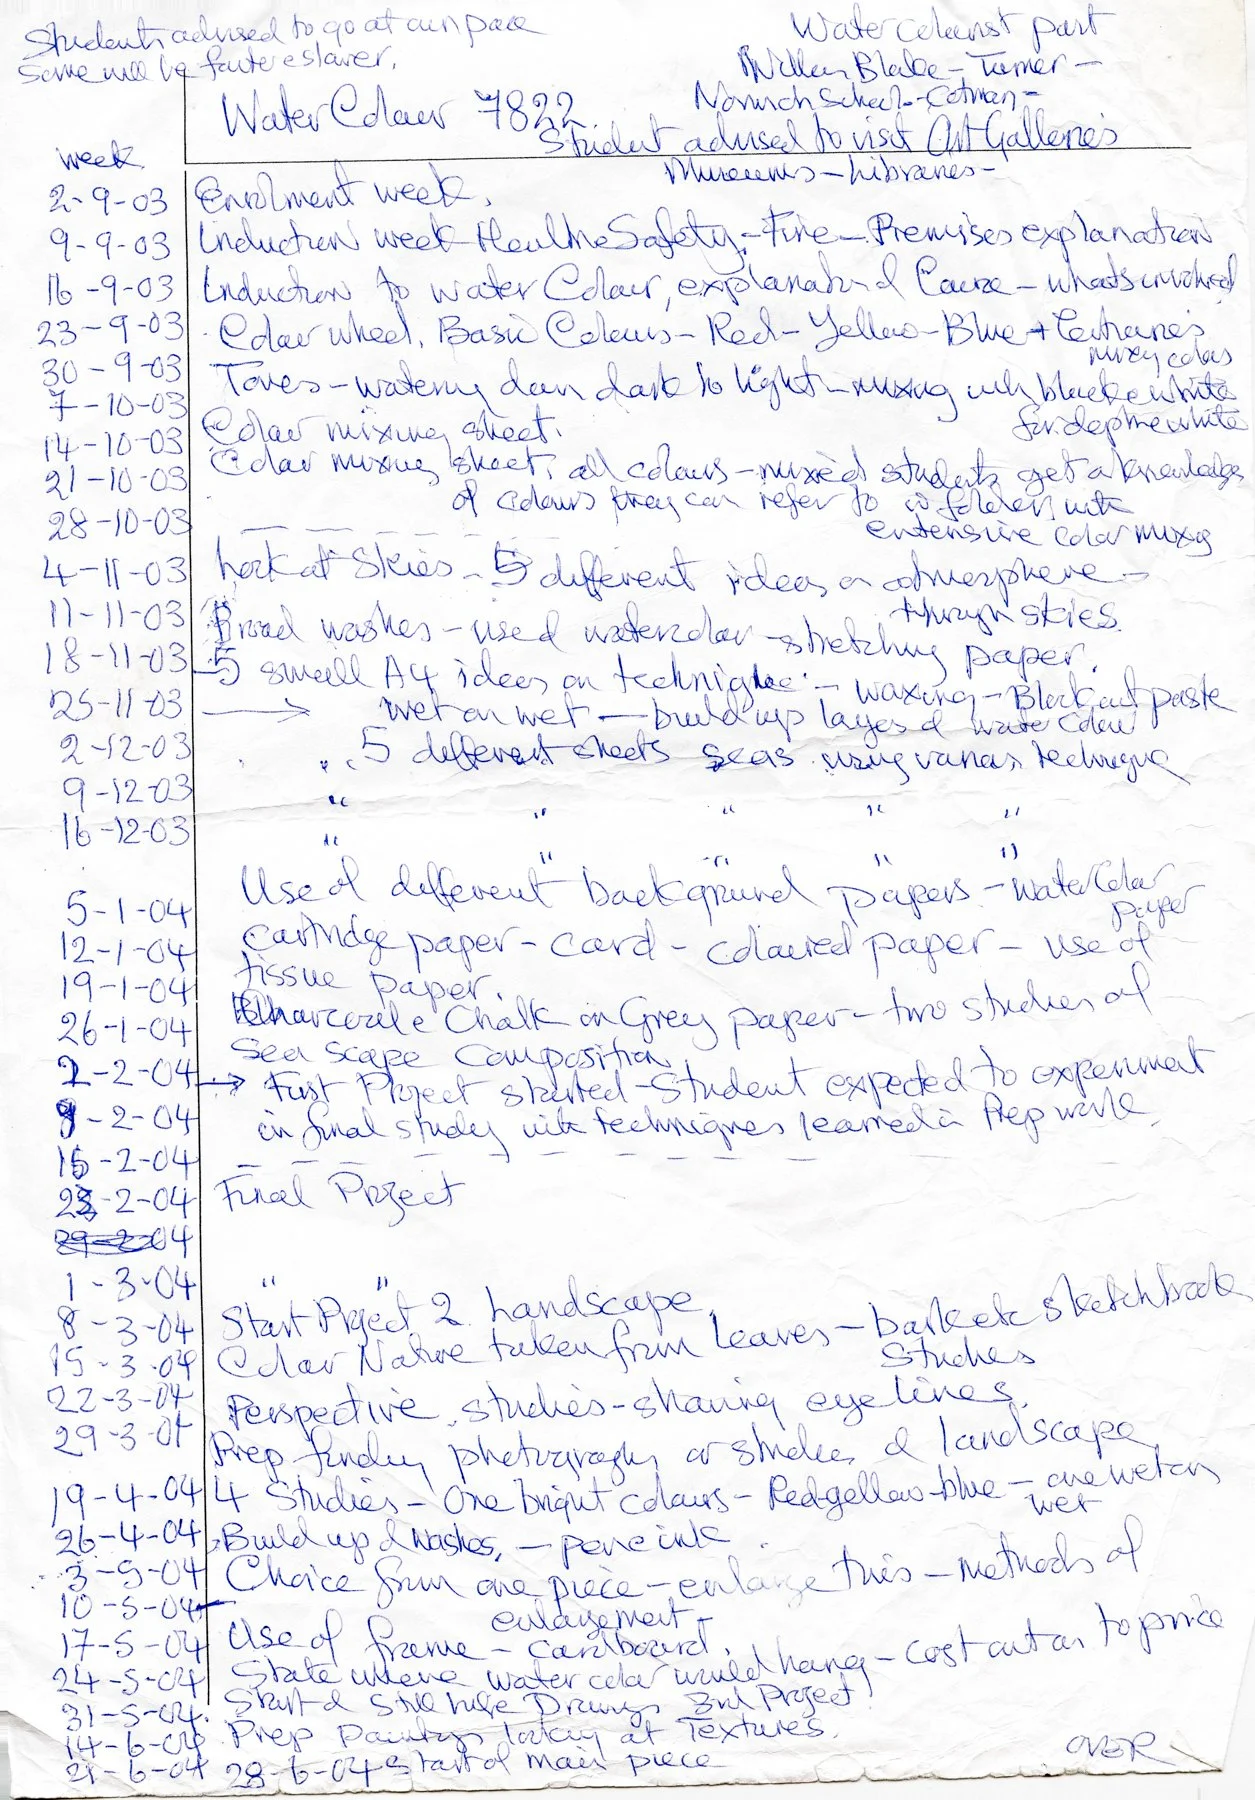 Students advised to go at own pace
Some will be faster & slower.
Watercolourist past
William Blake – Turner –
Norwich School – Cotman –
Water Colour 7822
Student advised to visit Art Galleries
Museums – Libraries –
week
2-9-03 Enrolment week.
9-9-03 Induction week Health & Safety – Fire – Premises explanation
16-9-03 Induction to Water Colour, explanation of Course – whats involved
23-9-03 Colour wheel, Basic Colours – Red – Yellow – Blue +
mixing colours
30-9-03 Tones – watering down dark to light – mixing with black & white
7-10-03
for depth & white
14-10-03 Colour mixing sheet.
21-10-03 Colour mixing sheet, all colours – mixed students get a knowledge
of colours they can refer to in folders with
28-10-03 extensive colour mixing
4-11-03 Look at Skies – 5 different ideas on atmosphere –
through skies
11-11-03 Broad washes – use of watercolour – stretching paper.
18-11-03 5 small A4 ideas on technique – waxing – Block out paste
25-11-03 → wet on wet – build up layers of water colour
2-12-03 " 5 different sheets seas using various technique
9-12-03 " " " " "
16-12-03 " " " " "
5-1-04 Use of different background papers – water colour
paper
12-1-04 cartridge paper – card – coloured paper – use of
19-1-04 tissue paper.
26-1-04 Charcoal & Chalk on Grey paper – two studies of
Sea scape composition
2-2-04 → First Project started – Student expected to experiment
9-2-04 in final study with techniques learned in Prep work
15-2-04
23-2-04 Final Project
04
1-3-04 " "
8-3-04 Start Project 2 Landscape.
15-3-04 Colour Nature taken from leaves – bark etc sketchbook
Studies
22-3-04 Perspective studies – sharing eye lines.
29-3-04 Prep finding photography or studies of landscape
19-4-04 4 Studies – One bright colours – Red-yellow-blue – one wet on
wet
26-4-04 Build up of washes, – pen & ink
3-5-04 Choice from one piece – enlarge this – Methods of
10-5-04 enlargement –
17-5-04 Use of frame – cardboard.
24-5-04 State where water colour would hang – cost out as to price
31-5-04 Start of Still life Drawings 3rd Project
14-6-04 Prep Paintings looking at Textures.
21-6-04 28-6-04 Start of main piece
OVER